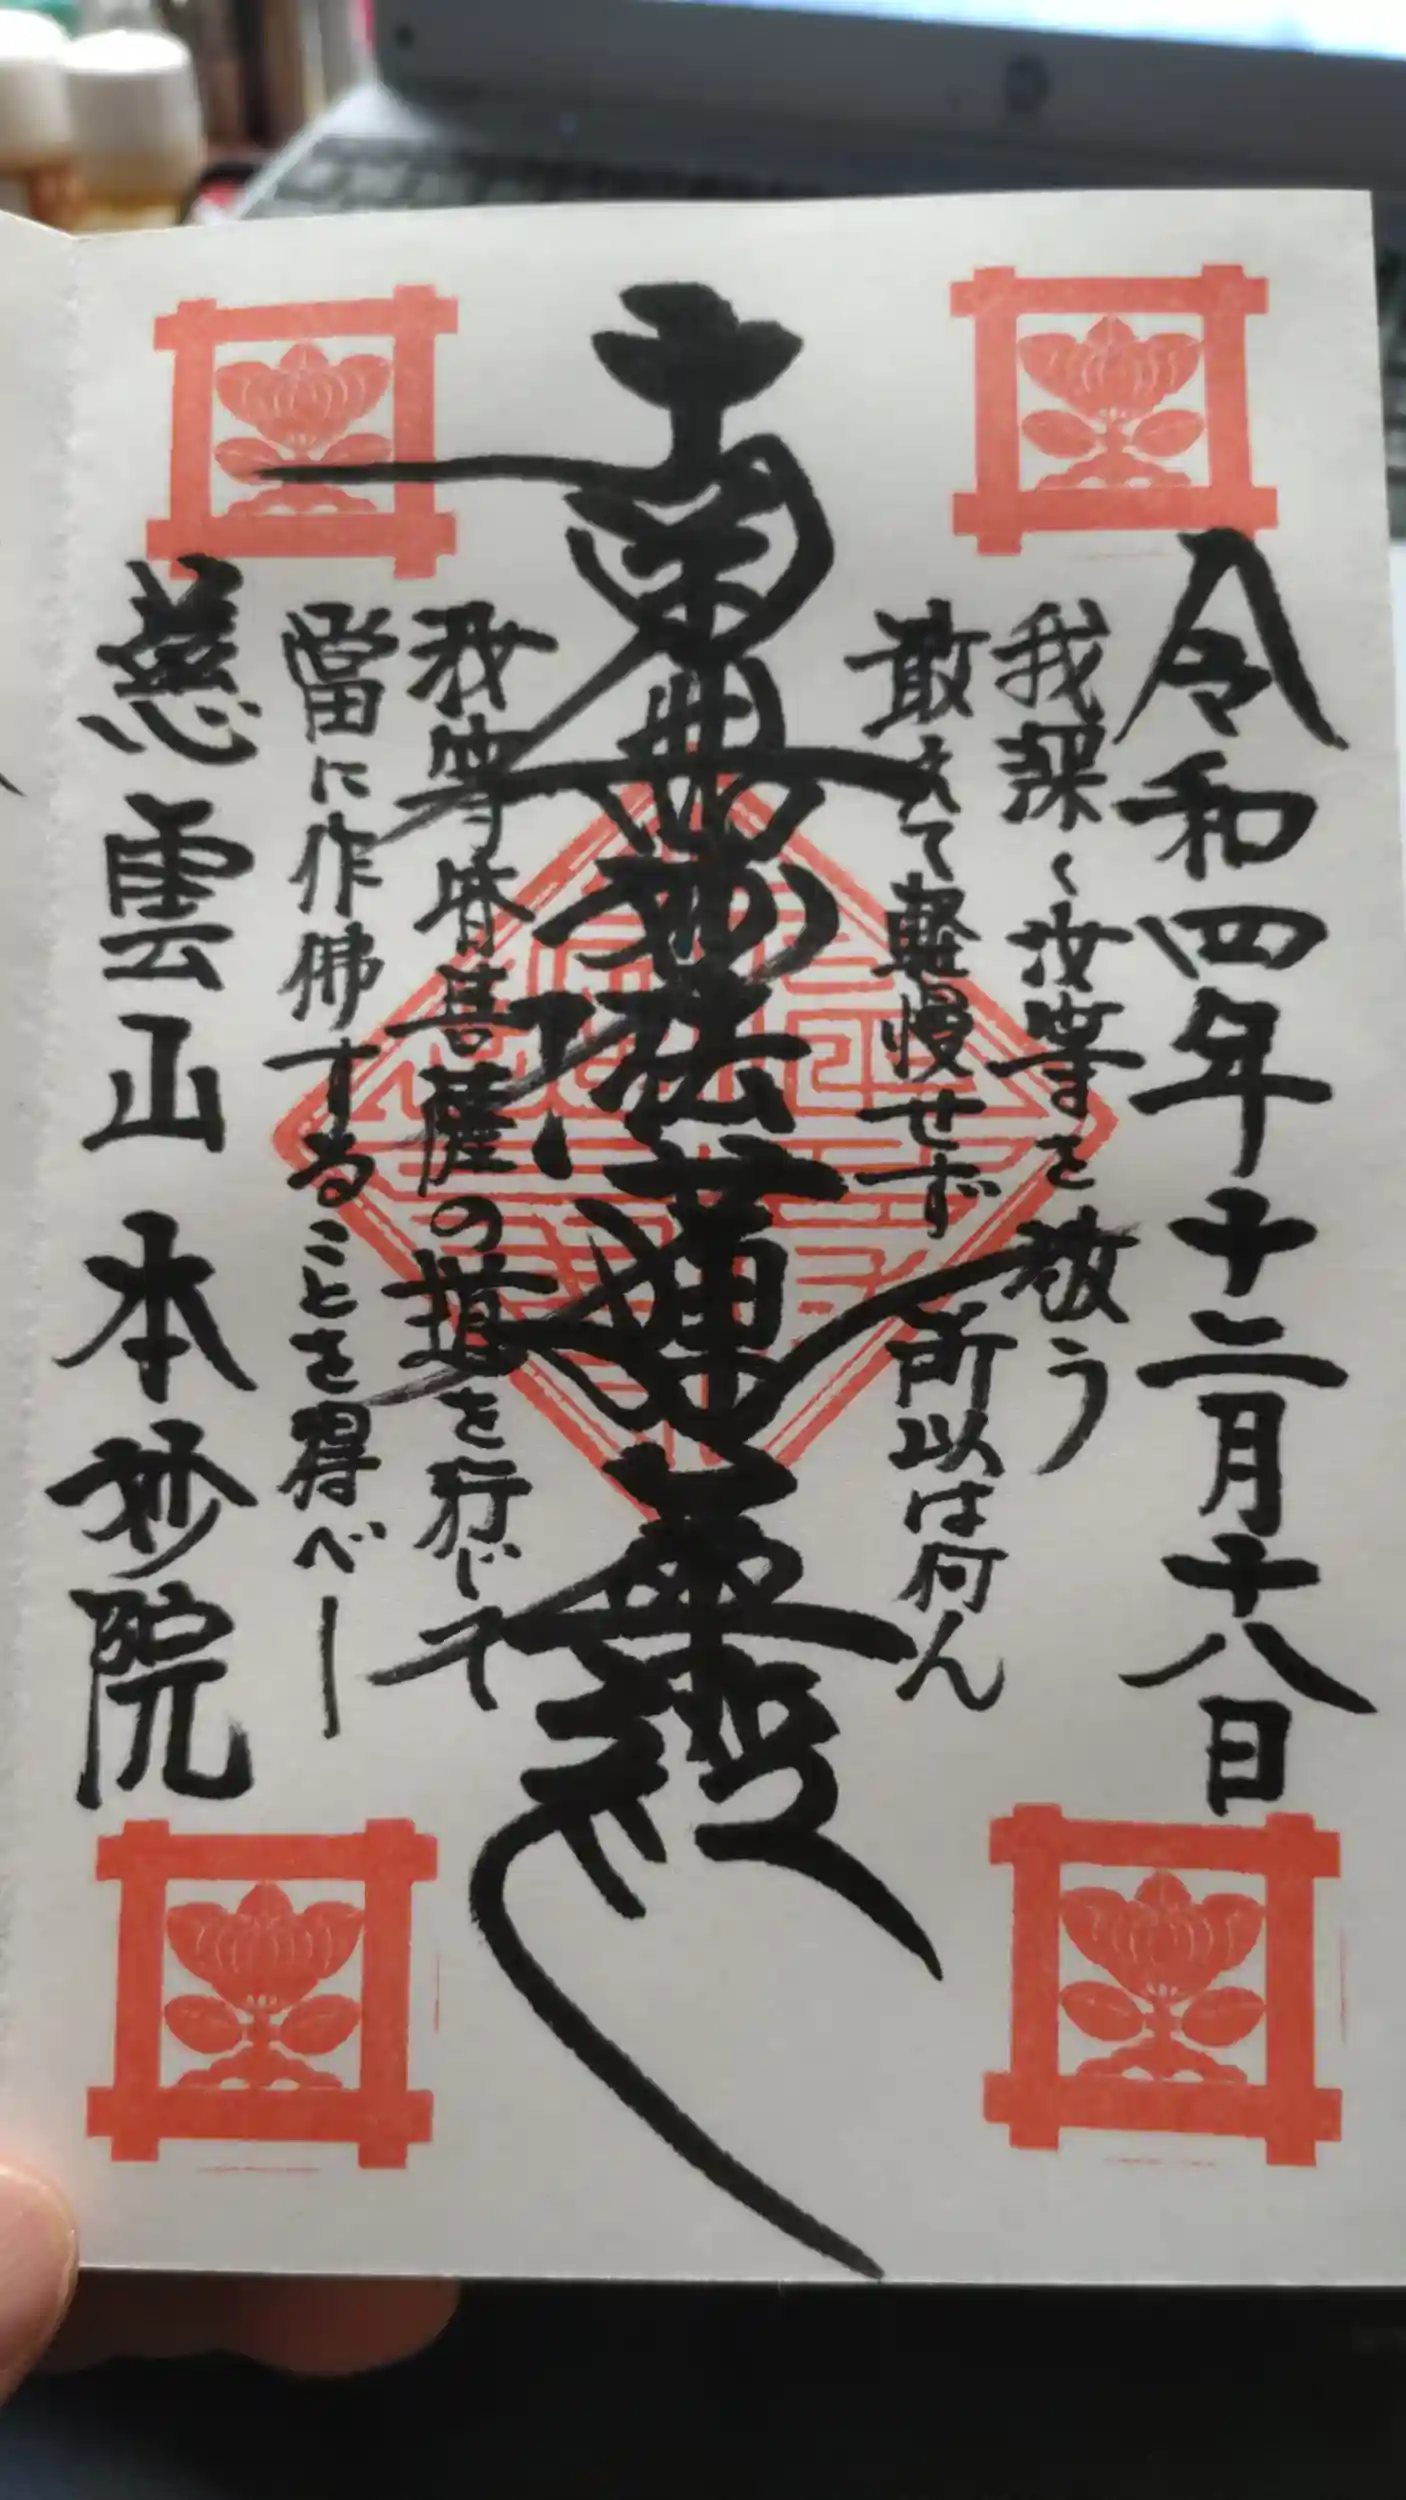 令和四年十二月十八日
我深く汝等を敬う
敢えて軽慢せず 所以は何ん
南無妙法蓮華経
我等皆菩薩の道を行じて
當に作佛することを得べし
慈雲山 本妙院